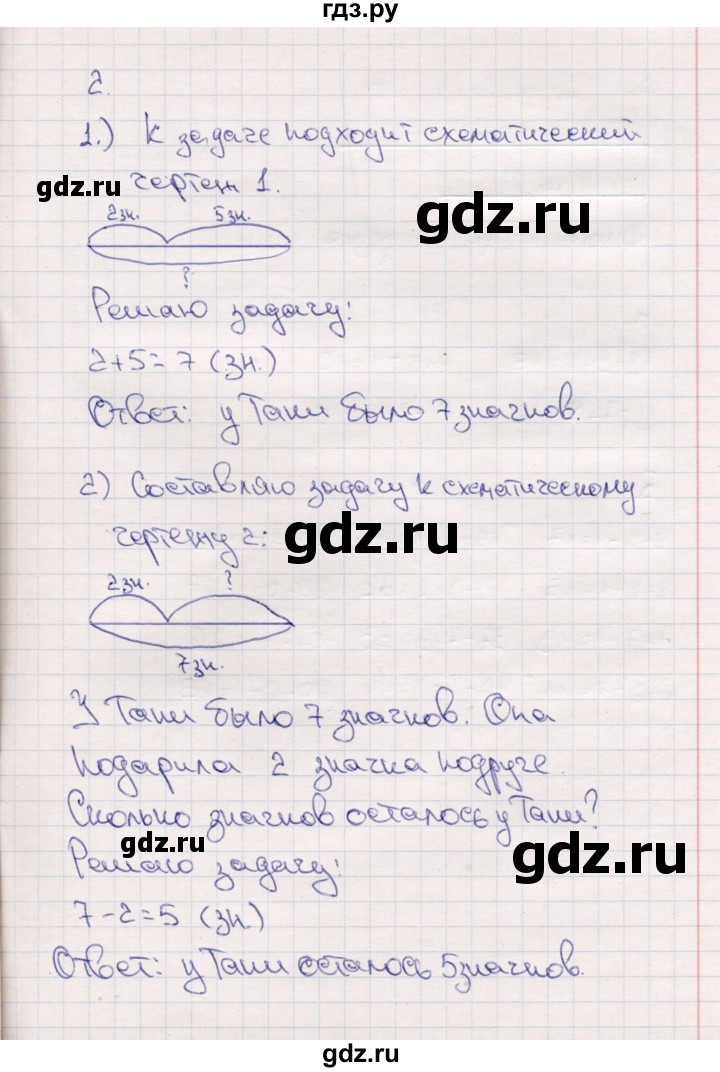 гдз.ру
2.
1.) К задаче подходит схематический
gdz.ru
чертеж 1.
gdz.ru
2зн. 5зн.
?
Решаю задачу:
2+5=7 (зн.)
Ответ: у Тани было 7 значков.
2) Составляю задачу к схематическому
чертежу 2:
gdz.ru
2зн. ?
7зн.
У Тани было 7 значков. Она
подарила 2 значка подруге.
Сколько значков осталось у Тани?
gdz.ru
Решаю задачу:
gdz.ru
7-2=5 (зн.)
Ответ: у Тани осталось 5 значков.
gdz.ru